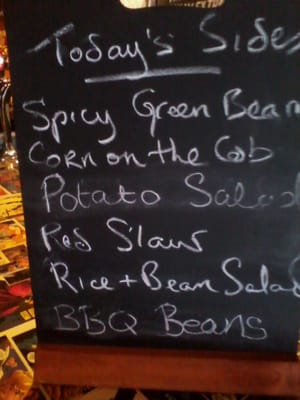 Today's Sides
Spicy Green Bean
Corn on the Cob
Potato Salad
Red Slaw
Rice + Bean Salad
BBQ Beans